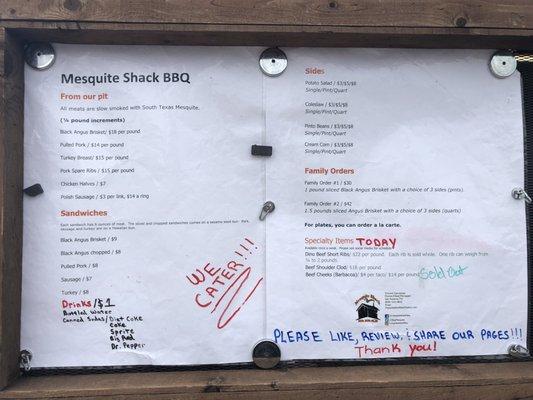 Mesquite Shack BBQ
From our pit
All meats are slow smoked with South Texas Mesquite.
(¼ pound increments)
Black Angus Brisket/ $18 per pound
Pulled Pork / $14 per pound
Turkey Breast/ $15 per pound
Pork Spare Ribs / $15 per pound
Chicken Halves / $7
Polish Sausage / $3 per link, $14 a ring
Sandwiches
Black Angus Brisket / $9
Black Angus chopped / $8
Pulled Pork / $8
Sausage / $7
Turkey / $8
Drinks/$1
Bottled Water
Canned Sodas/Diet Coke
Coke
Sprite
Big Red
Dr. Pepper
WE
CATER!!!
Sides
Potato Salad / $3/$5/$8
Single/Pint/Quart
Coleslaw / $3/$5/$8
Single/Pint/Quart
Pinto Beans / $3/$5/$8
Single/Pint/Quart
Cream Corn / $3/$5/$8
Single/Pint/Quart
Family Orders
Family Order #1 / $30
1 pound sliced Black Angus Brisket with a choice of 3 sides (pints).
Family Order #2 / $42
1.5 pounds sliced Angus Brisket with a choice of 3 sides (quarts)
For plates, you can order a la carte.
Specialty Items TODAY
Dino Beef Short Ribs/ $22 per pound. Each rib is sold whole. One rib can weigh from
¾ to 2 pounds.
Beef Shoulder Clod/ $18 per pound
Beef Cheeks (Barbacoa)/ $4 per taco/ $14 per pound Sold Out
PLEASE LIKE, REVIEW, & SHARE OUR PAGES!!!
Thank you!